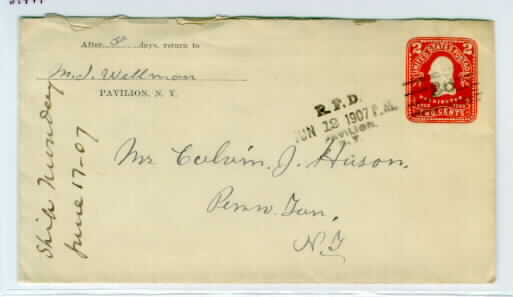 After 5 days, return to
M. J. Wellman
PAVILION, N. Y.
Ship Munday
June 17-07
2 UNITED STATES POSTAGE 2
WASHINGTON
TWO CENTS
R.F.D.
JUN 12 1907 P.M.
PAVILION,
N.Y.
Mr Calvin J. Huson.
Penn Yan,
N.Y